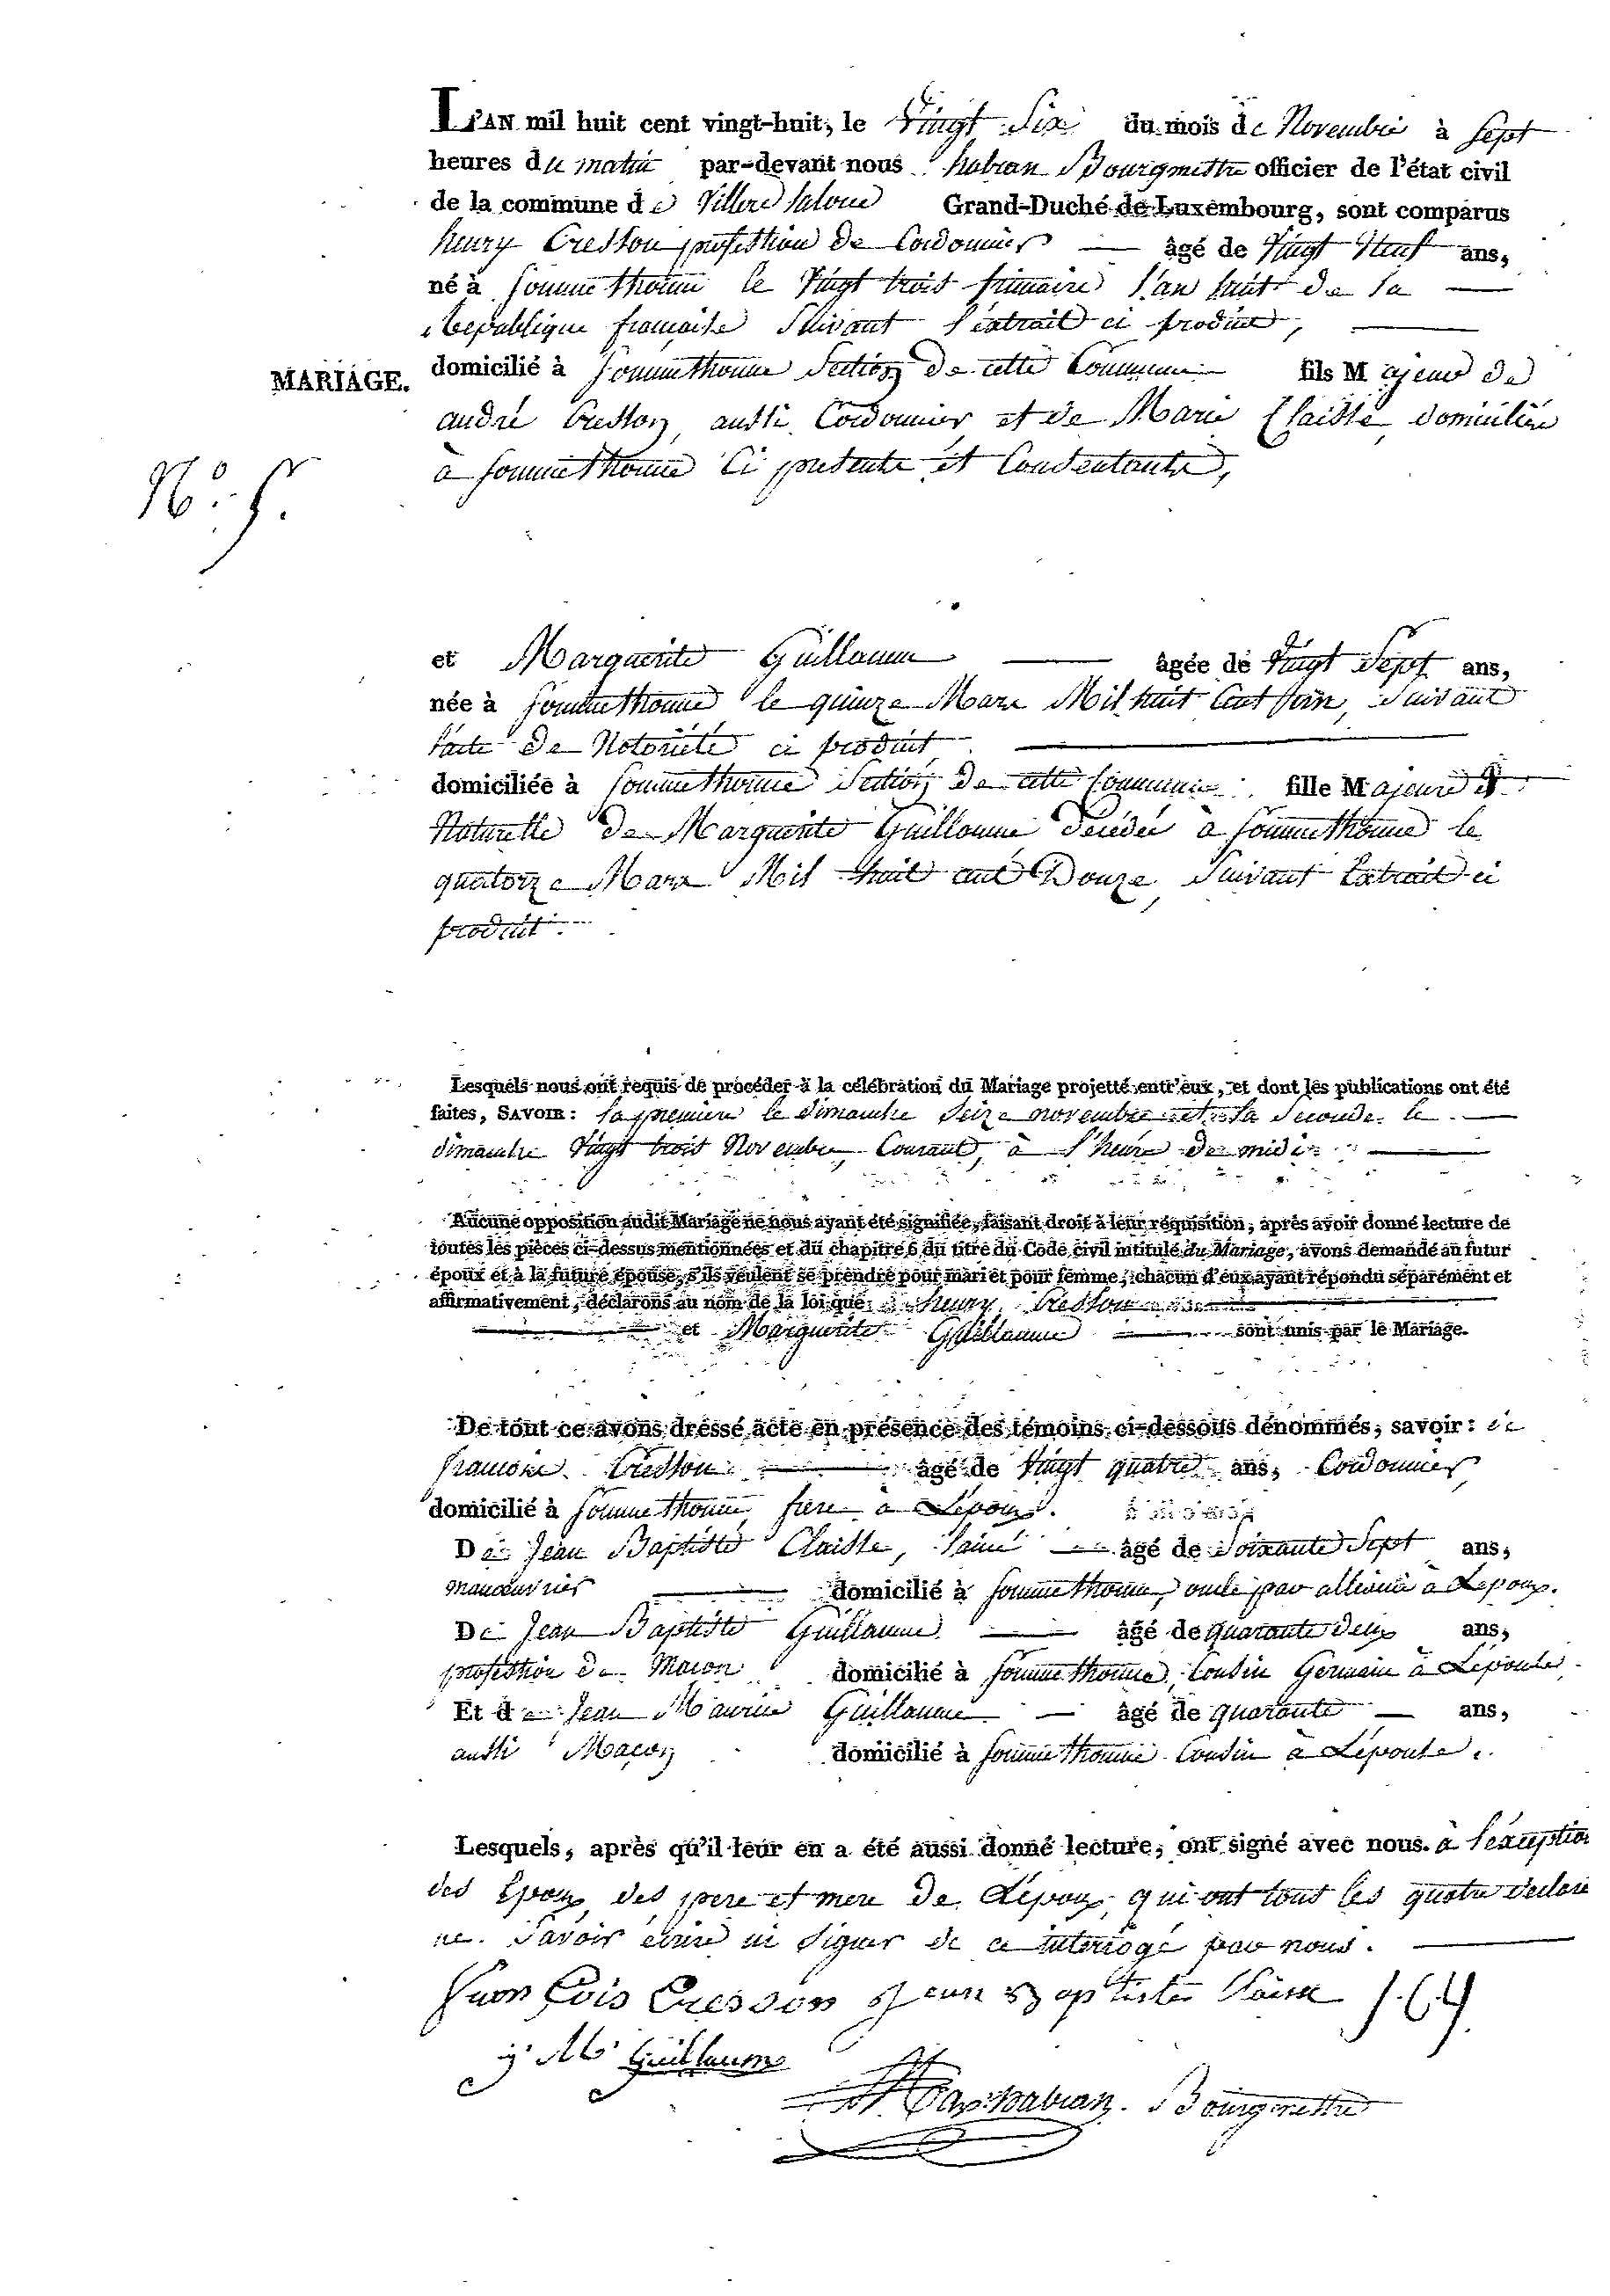 L'AN mil huit cent vingt-huit, le Vingt Six du mois de Novembre à Sept
heures du matin par-devant nous habran Bourgmestre officier de l'état civil
de la commune de Villers laloue Grand-Duché de Luxembourg, sont comparus
henry Cresson profession de Cordonnier âgé de Vingt Neuf ans,
né à Sommethonne le Vingt trois frimaire l'an huit de la
République française Suivant l'extrait ci produit,
MARIAGE.
domicilié à Sommethonne Section de cette Commune fils Majeur de
andré Cresson, aussi Cordonnier et de Marie Claisse, domiciliés
à Sommethonne Ci présente et Consentante,
N.º 5.
et Marguerite Guillaume âgée de Vingt Sept ans,
née à Sommethonne le quinze Mars Mil huit Cent Suivant
l'acte de Notoriété ci produit
domiciliée à Sommethonne Section de cette Commune fille Majeure et
Naturelle de Marguerite Guillaume décédée à Sommethonne le
quatorze Mars Mil huit cent Douze, Suivant Extrait ci
produit.
Lesquels nous ont requis de procéder à la célébration du Mariage projetté entr'eux, et dont les publications ont été
faites, SAVOIR: la premiere le dimanche Seize novembre et la Seconde le
dimanche Vingt trois Novembre, Courant, à l'heure de midi
Aucune opposition audit Mariage ne nous ayant été signifiée, faisant droit à leur réquisition, après avoir donné lecture de
toutes les pièces ci-dessus mentionnées et du chapitre 6 du titre du Code civil intitulé du Mariage, avons demandé au futur
époux et à la future épouse, s'ils veulent se prendre pour mari et pour femme, chacun d'eux ayant répondu séparément et
affirmativement, déclarons au nom de la loi que henry Cresson
et Marguerite Guillaume sont unis par le Mariage.
De tout ce avons dressé acte en présence des témoins ci-dessous dénommés, savoir: de
françois Cresson âgé de Vingt quatre ans, Cordonnier
domicilié à Sommethonne, frere à L'époux.
De Jean Baptiste Claisse, l'ainé âgé de Soixante Sept ans,
manoeuvrier domicilié à Sommethonne, oncle par alliance à L'epoux.
De Jean Baptiste Guillaume âgé de quarante deux ans,
profession de Macon domicilié à Sommethonne, Cousin Germain à L'épouse.
Et de Jean Maurice Guillaume âgé de quarante ans,
aussi Maçon domicilié à Sommethonne Cousin à L'épouse.
Lesquels, après qu'il leur en a été aussi donné lecture, ont signé avec nous. à l'exception
des Epoux, des pere et mere de L'époux, qui ont tous les quatre declaré
ne Savoir écrire ni Signer de ce interrogé par nous.
fran Çois Cresson jean baptiste
j. M. Guillaume
habran. Bourgmestre